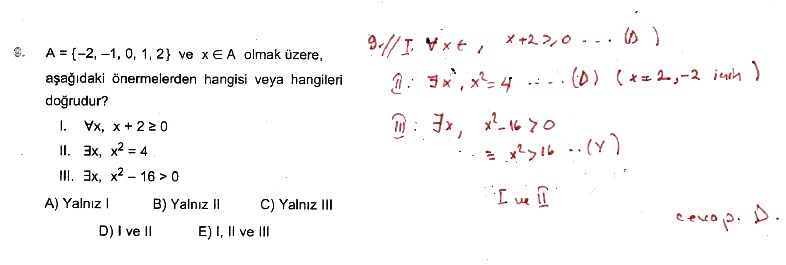 9. A = {–2, –1, 0, 1, 2} ve x ∈ A olmak üzere,
aşağıdaki önermelerden hangisi veya hangileri
doğrudur?
I. ∀x, x + 2 ≥ 0
II. ∃x, x² = 4
III. ∃x, x² – 16 > 0
A) Yalnız I B) Yalnız II C) Yalnız III
D) I ve II E) I, II ve III
9-// I. ∀x ∈ , x+2 ≥ 0 .... (D)
II: ∃x, x² = 4 ..... (D) (x = 2, -2 için)
III: ∃x, x² - 16 > 0
≡ x² > 16 ..(Y)
I ve II
cevap. D.